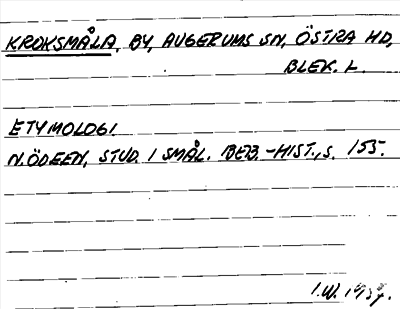 KROKSMÅLA, BY, AUGERUMS SN, ÖSTRA HD,
BLEK. L.
ETYMOLOGI
N. ÖDEEN, STUD. I SMÅL. BEB.-HIST., S. 155.
I.W.